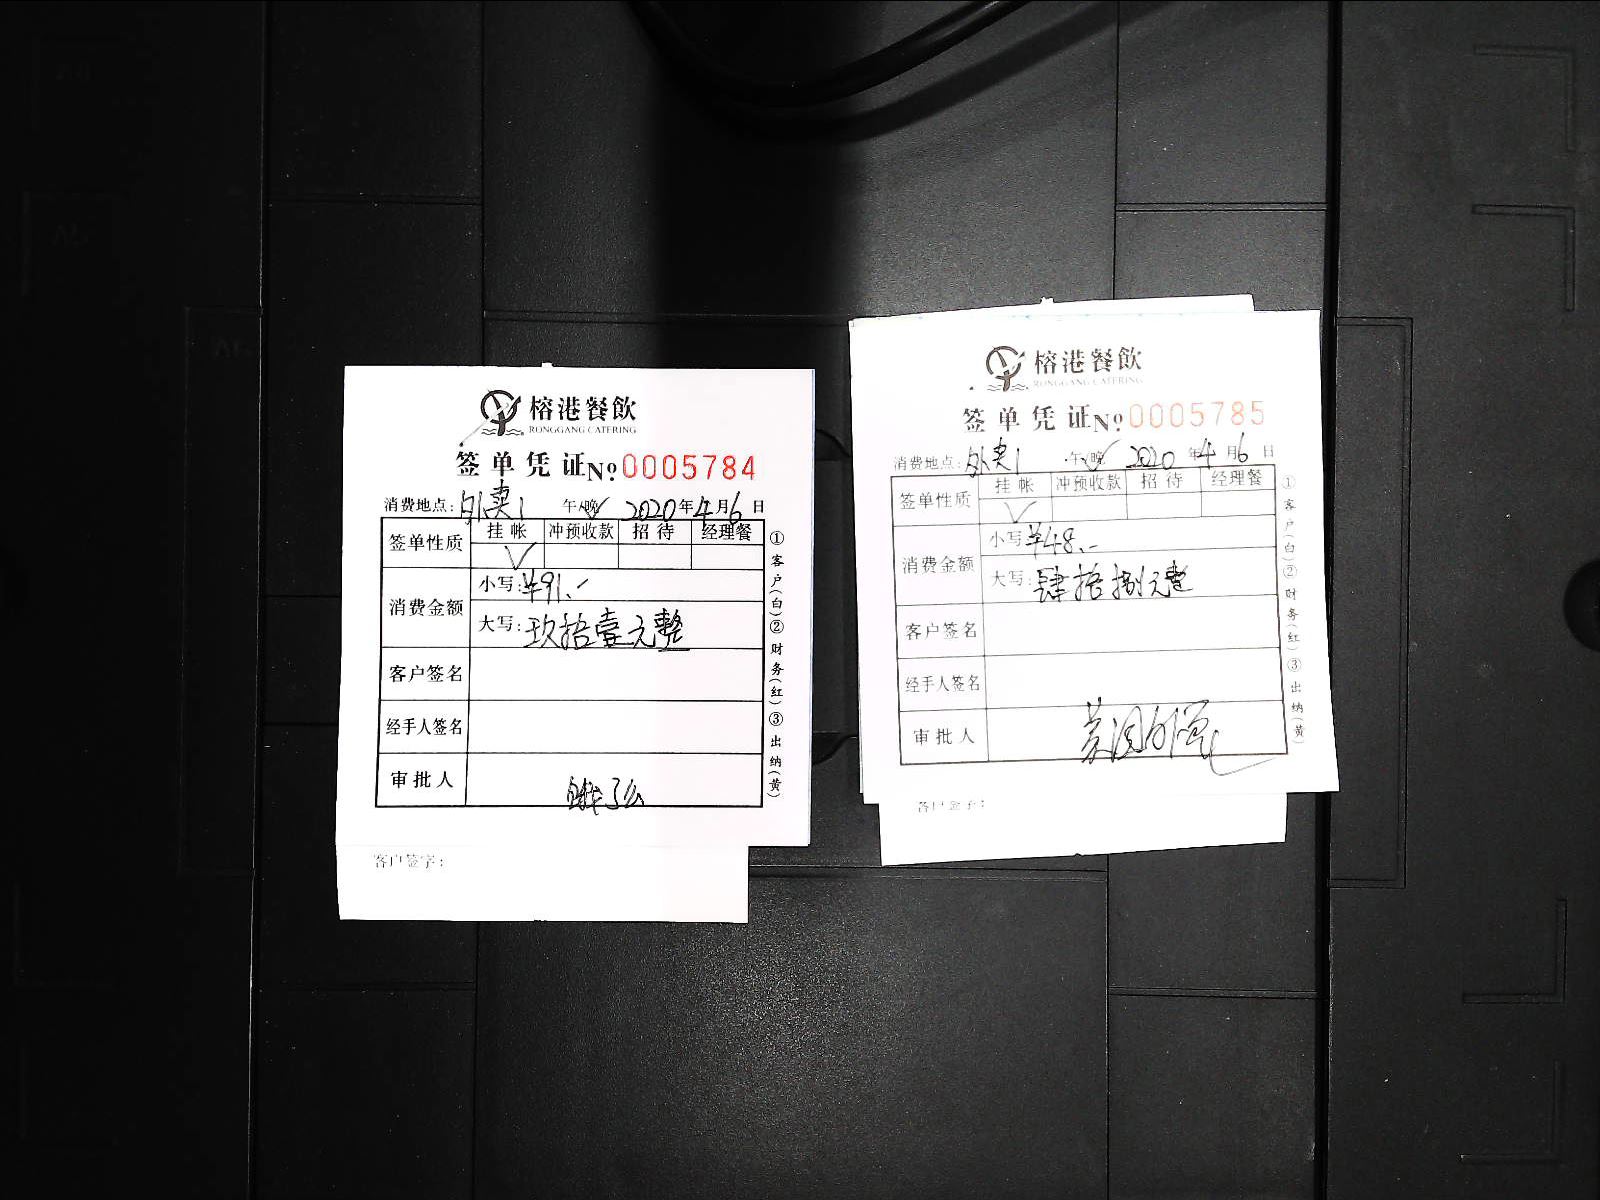 榕港餐飲
RONGGANG CATERING
签单凭证 No 0005784
消费地点: 外卖1 午/晚✓ 2020年4月6日
签单性质 挂帐 冲预收款 招待 经理餐
✓
消费金额 小写: ¥91.-
大写: 玖拾壹元整
客户签名
经手人签名
审批人 饿了么
①客户(白)②财务(红)③出纳(黄)
客户签字:
榕港餐飲
RONGGANG CATERING
签单凭证 No 0005785
消费地点: 外卖1 午/晚✓ 2020年4月6日
签单性质 挂帐 冲预收款 招待 经理餐
✓
消费金额 小写: ¥48.-
大写: 肆拾捌元整
客户签名
经手人签名
审批人
①客户(白)②财务(红)③出纳(黄)
客户签字: